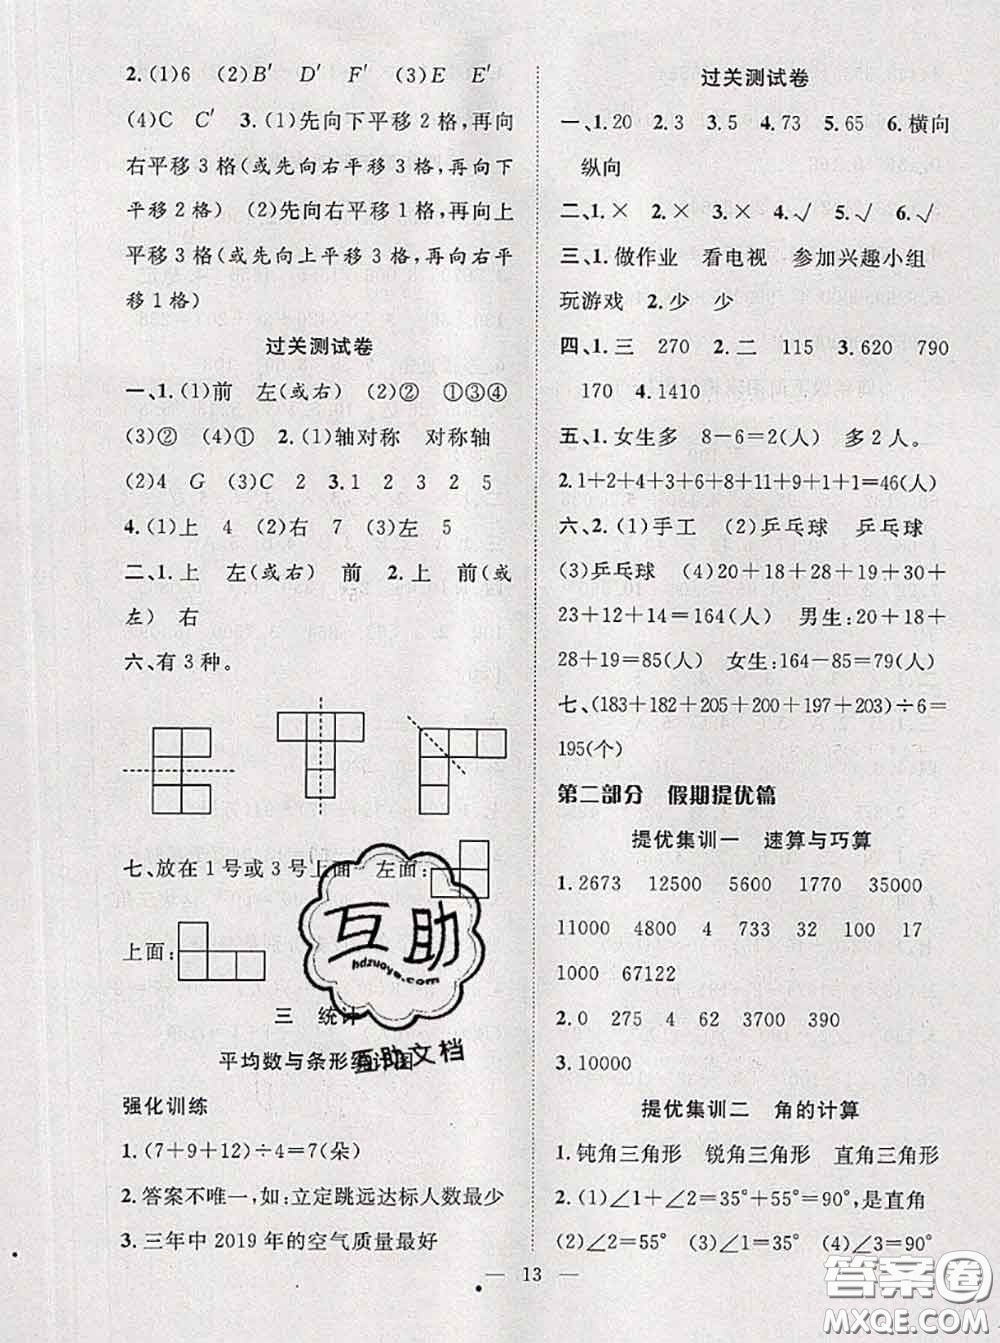 2.(1)6　(2)B′　D′　F′　(3)E　E′
(4)C　C′　3.(1)先向下平移2格,再向
右平移3格(或先向右平移3格,再向下
平移2格)　(2)先向右平移1格,再向上
平移3格(或先向上平移3格,再向右平
移1格)
过关测试卷
一、1.(1)前　左(或右)　(2)②　①③④
(3)②　(4)①　2.(1)轴对称　对称轴
(2)4　G　(3)C　2　3.1　2　3　2　5
4.(1)上　4　(2)右　7　(3)左　5
二、1.上　左(或右)　前　2.上　前(或
左)　右
六、有3种。
七、放在1号或3号上面　左面:
上面:
三　统计
平均数与条形统计图
强化训练
1.(7+9+12)÷4=7(朵)
2.答案不唯一,如:立定跳远达标人数最少
3.三年中2019年的空气质量最好
过关测试卷
一、1.20　2.3　3.5　4.73　5.65　6.横向
纵向
二、1.×　2.×　3.×　4.√　5.√　6.√
三、1.做作业　看电视　参加兴趣小组
玩游戏　2.少　少
四、1.三　270　2.二　115　3.620　790
170　4.1410
五、1.女生多　8-6=2(人)　多2人。
2.1+2+4+6+8+12+11+1+1=46(人)
六、2.(1)手工　(2)乒乓球　乒乓球
(3)乒乓球　(4)20+18+28+19+30+
23+12+12+14=164(人)　男生:20+18+
28+19=85(人)　女生:164-85=79(人)
七、(183+182+205+200+197+203)÷6=
195(个)
第二部分　假期提优篇
提优集训一　速算与巧算
1.2673　12500　5600　1770　35000
11000　4800　4　733　32　100　17
1000　67122
2.0　275　4　62　3700　390
3.10000
提优集训二　角的计算
1.钝角三角形　锐角三角形　直角三角形
2.(1)∠1+∠2=35°+55°=90°,是直角
(2)∠2=55°　(3)∠1=35°　(4)∠3=90°
— 13 —
互助
hdzuoye.com
互助文档
答案圈
MXQE.COM